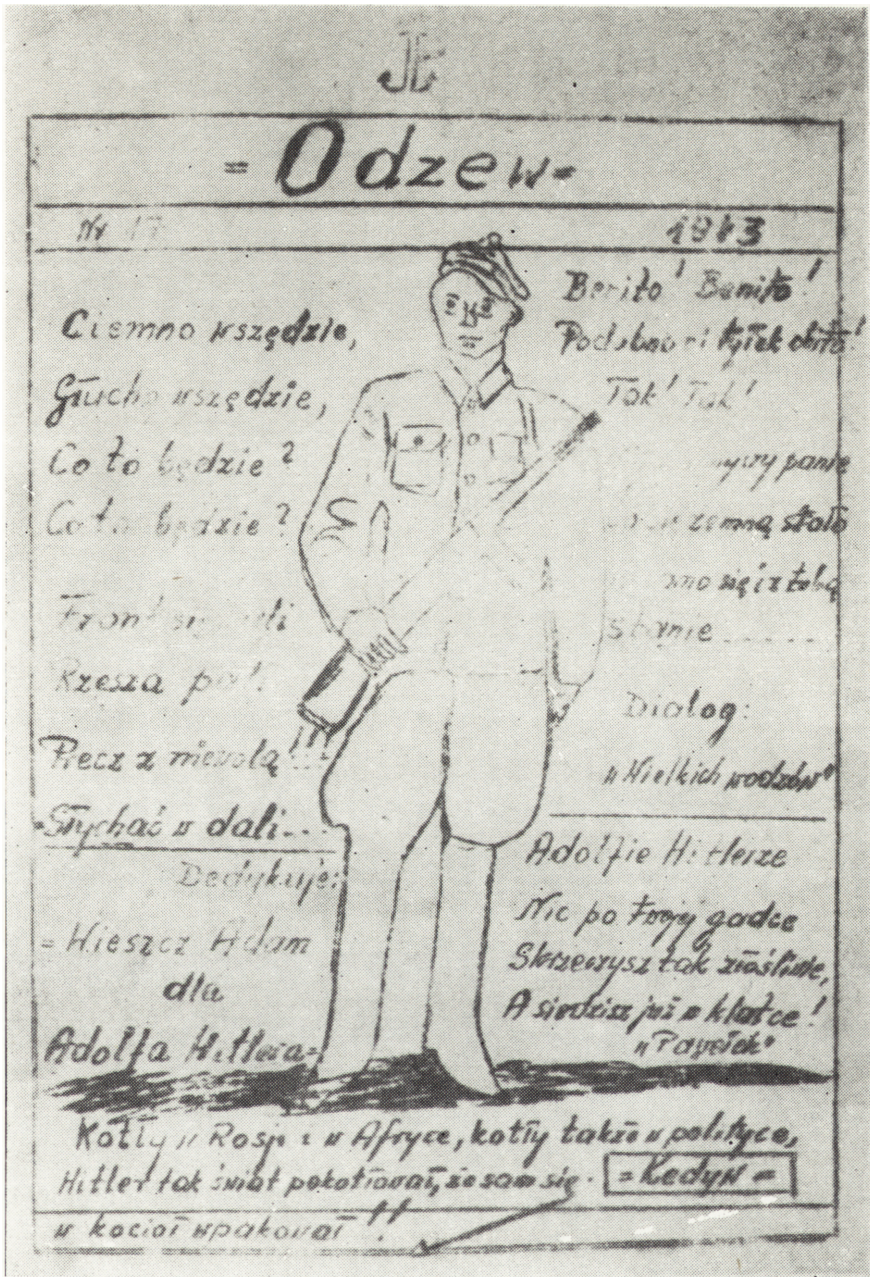 = Odzew =
Nr 17
1943
Ciemno wszędzie,
Głucho wszędzie,
Co to będzie?
Co to będzie?
Front się
Rzesza pali
Precz z niewolą!!!
Słychać w dali...
Dedykuje:
= Wieszcz Adam
dla
Adolfa Hitlera=
Benito! Benito!
Podobno ci tyłek obito!
Tak! Tak!
panie
zemną stało
się i z tobą
stanie
Dialog:
"Wielkich wodzów"
Adolfie Hitlerze
Nic po twojej gadce
Skrzeczysz tak złośliwie,
A siedzisz już w klatce!
"Pawełek"
Kotły w Rosji i w Afryce, kotły także w polityce,
Hitler tak świat pokotłował, że sam się.
w kocioł wpakował!!
=Kedyw=